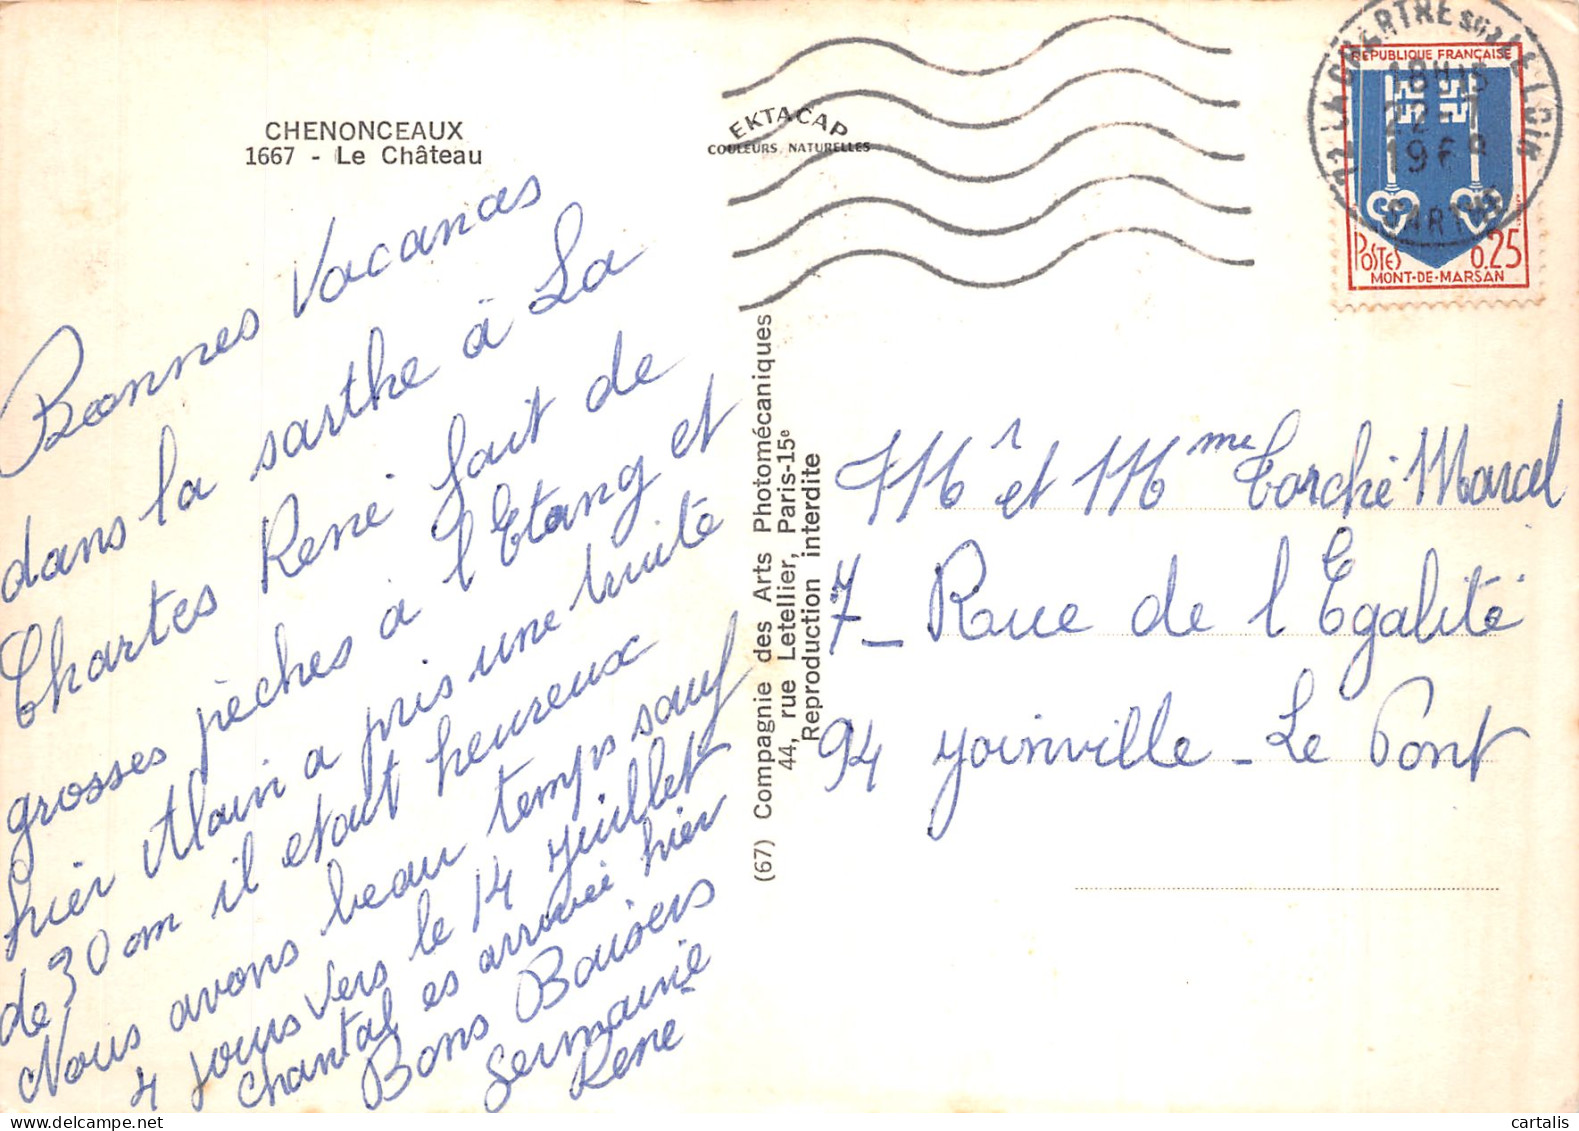 CHENONCEAUX
1667 - Le Château
Bonnes Vacanas
dans la sarthe à La
Chartes René fait de
grosses pèches a l'Etang et
hier Alain a pris une truite
de 30 cm il etait heureux
Nous avons beau temps sauf
4 jours vers le 14 Juillet
Chantal es arrivée hier
Bons Baisers
Germaine
René
EKTACAP
COULEURS NATURELLES
(67) Compagnie des Arts Photomécaniques
44, rue Letellier, Paris-15e
Reproduction interdite
72 LA CHARTRE SUR LE LOIR
18H15
22-7
196
SARTHE
REPUBLIQUE FRANÇAISE
POSTES 0.25
MONT-DE-MARSAN
Mr et Mme Torché Marcel
7_ Rue de l'Egalité
94 Joinville - Le Pont
cartalis